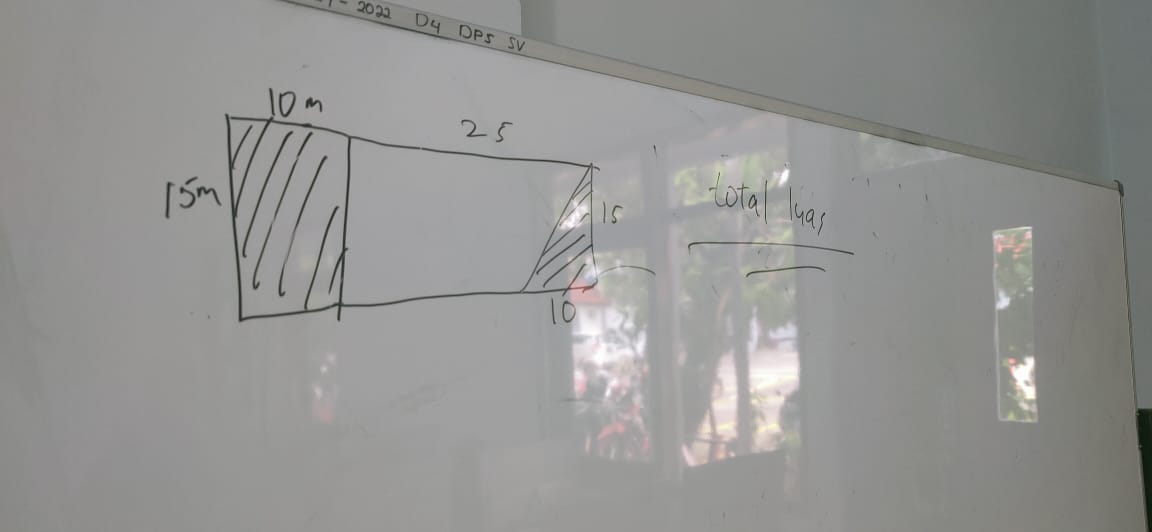 2022 D4 DPS SV
10 m
25
15m
15
10
total luas